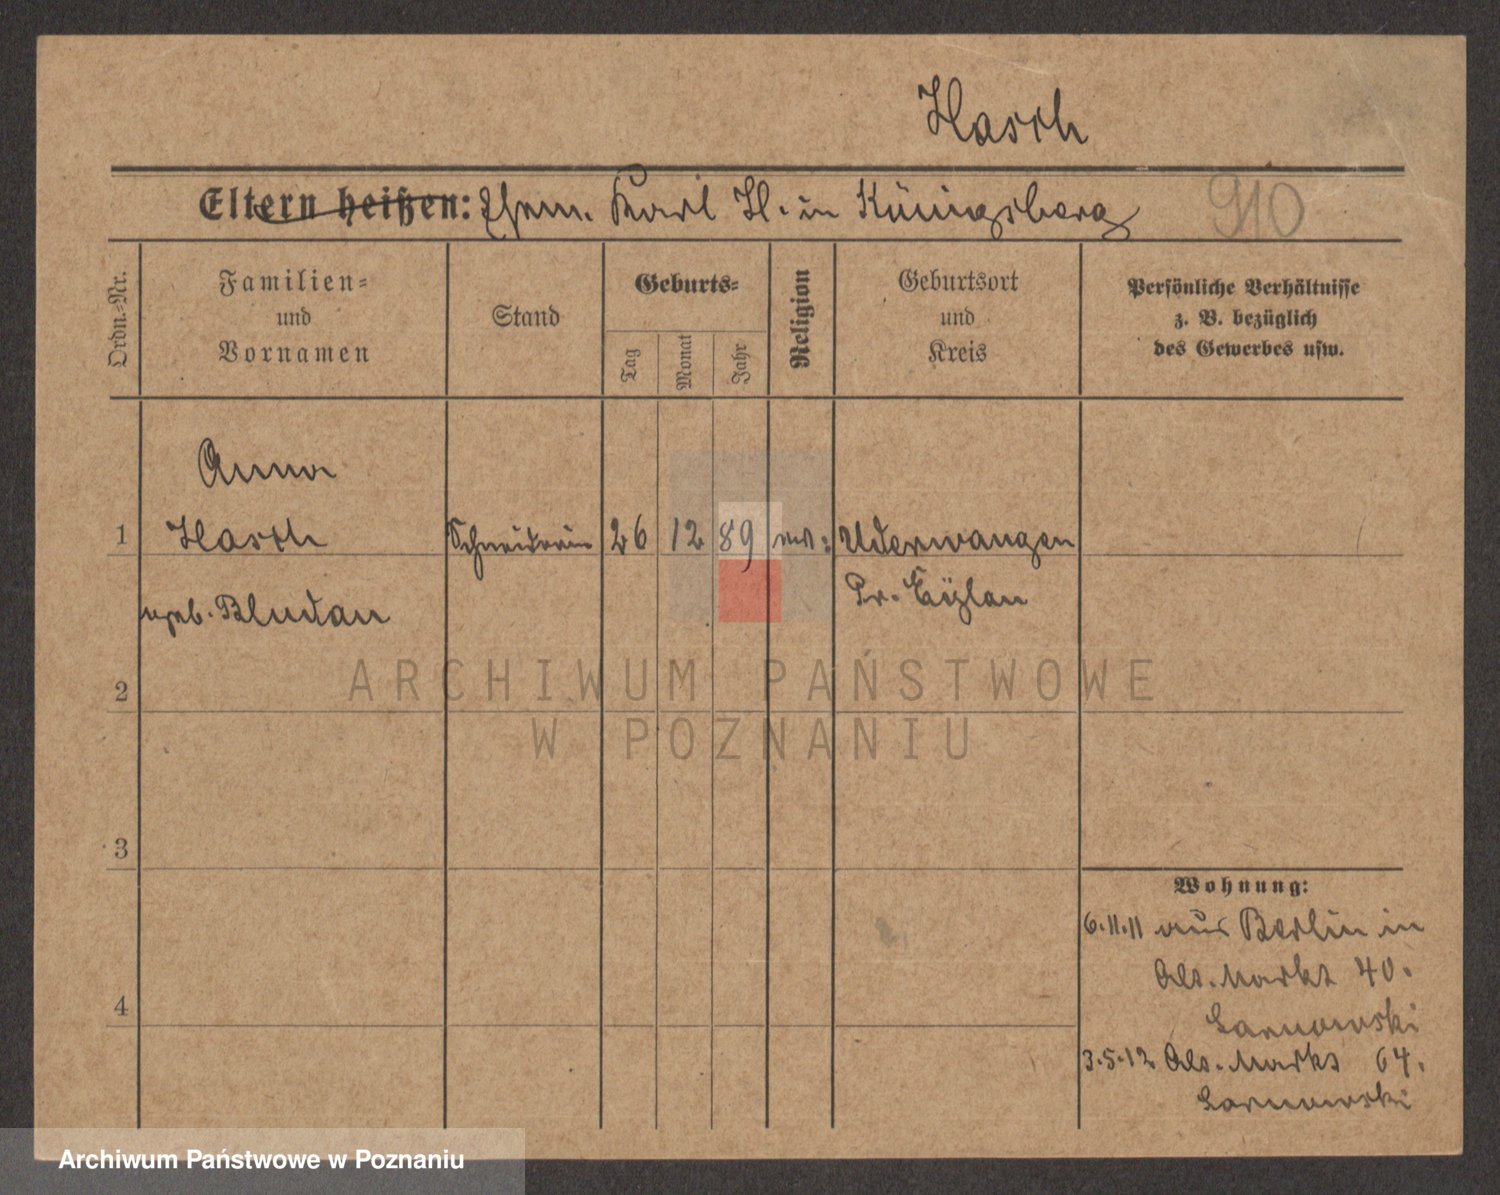 Hasch
Eltern heißen: Ehem. Karl H. in Königsberg
910
Ordn.-Nr.
Familien-
und
Vornamen
Stand
Geburts-
Tag
Monat
Jahr
Religion
Geburtsort
und
Kreis
Persönliche Verhältnisse
z. B. bezüglich
des Gewerbes usw.
Anna
1 Hasch Schneiderin 26 12 89 ev. Uderwangen
geb. Bludau Pr. Eylau
2
3
4
Wohnung:
6.11.11 aus Berlin in
Alt. Markt 40.
Sarnowski
3.5.12 Alt. Markt 64.
Sarnowski
ARCHIWUM PAŃSTWOWE
W POZNANIU
Archiwum Państwowe w Poznaniu